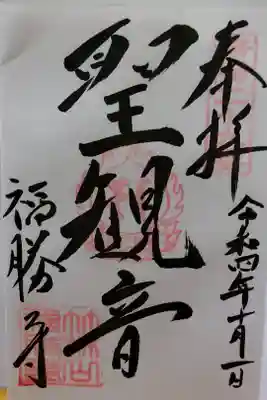 奉拝
令和四年十月一日
聖観音
福勝寺